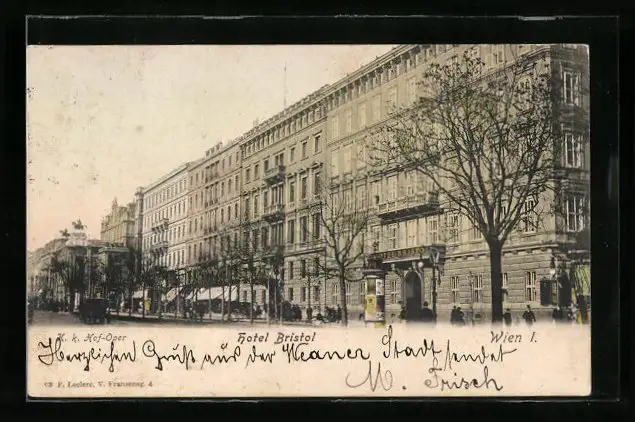 K. k. Hof-Oper Hotel Bristol Wien I.
Herzlichen Gruß aus der Weaner Stadt sendet
M. Frisch
F. Leclerc, V. Franzensg. 4